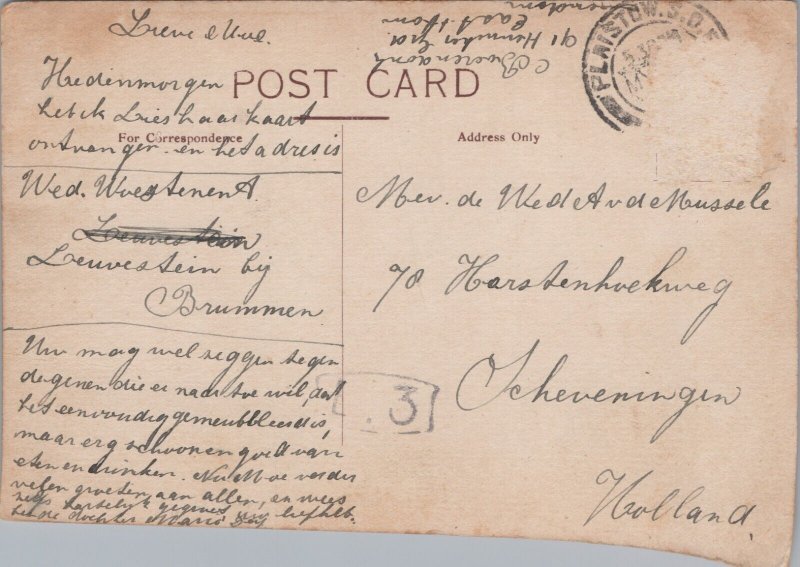 Lieve Moe.
Hedenmorgen
heb ik Lies haar kaart
ontvangen en het adres is
Wed. Woestenenk
Leuvestein
Leuvestein bij
Brummen
Uw mag wel zeggen tegen
degenen die er naar toe wil, dat
het eenvoudig gemeubileerd is,
maar erg schoon en goed van
eten en drinken. Nu Moe verder
velen groeten aan allen, en wees
zelf hartelijk gegroet
dochter Marie
POST CARD
For Correspondence
Address Only
91
East
PLAISTOW. S.O.
Mev. de Wed A v d Mussele
78 Harstenhoekweg
Scheveningen
Holland
3